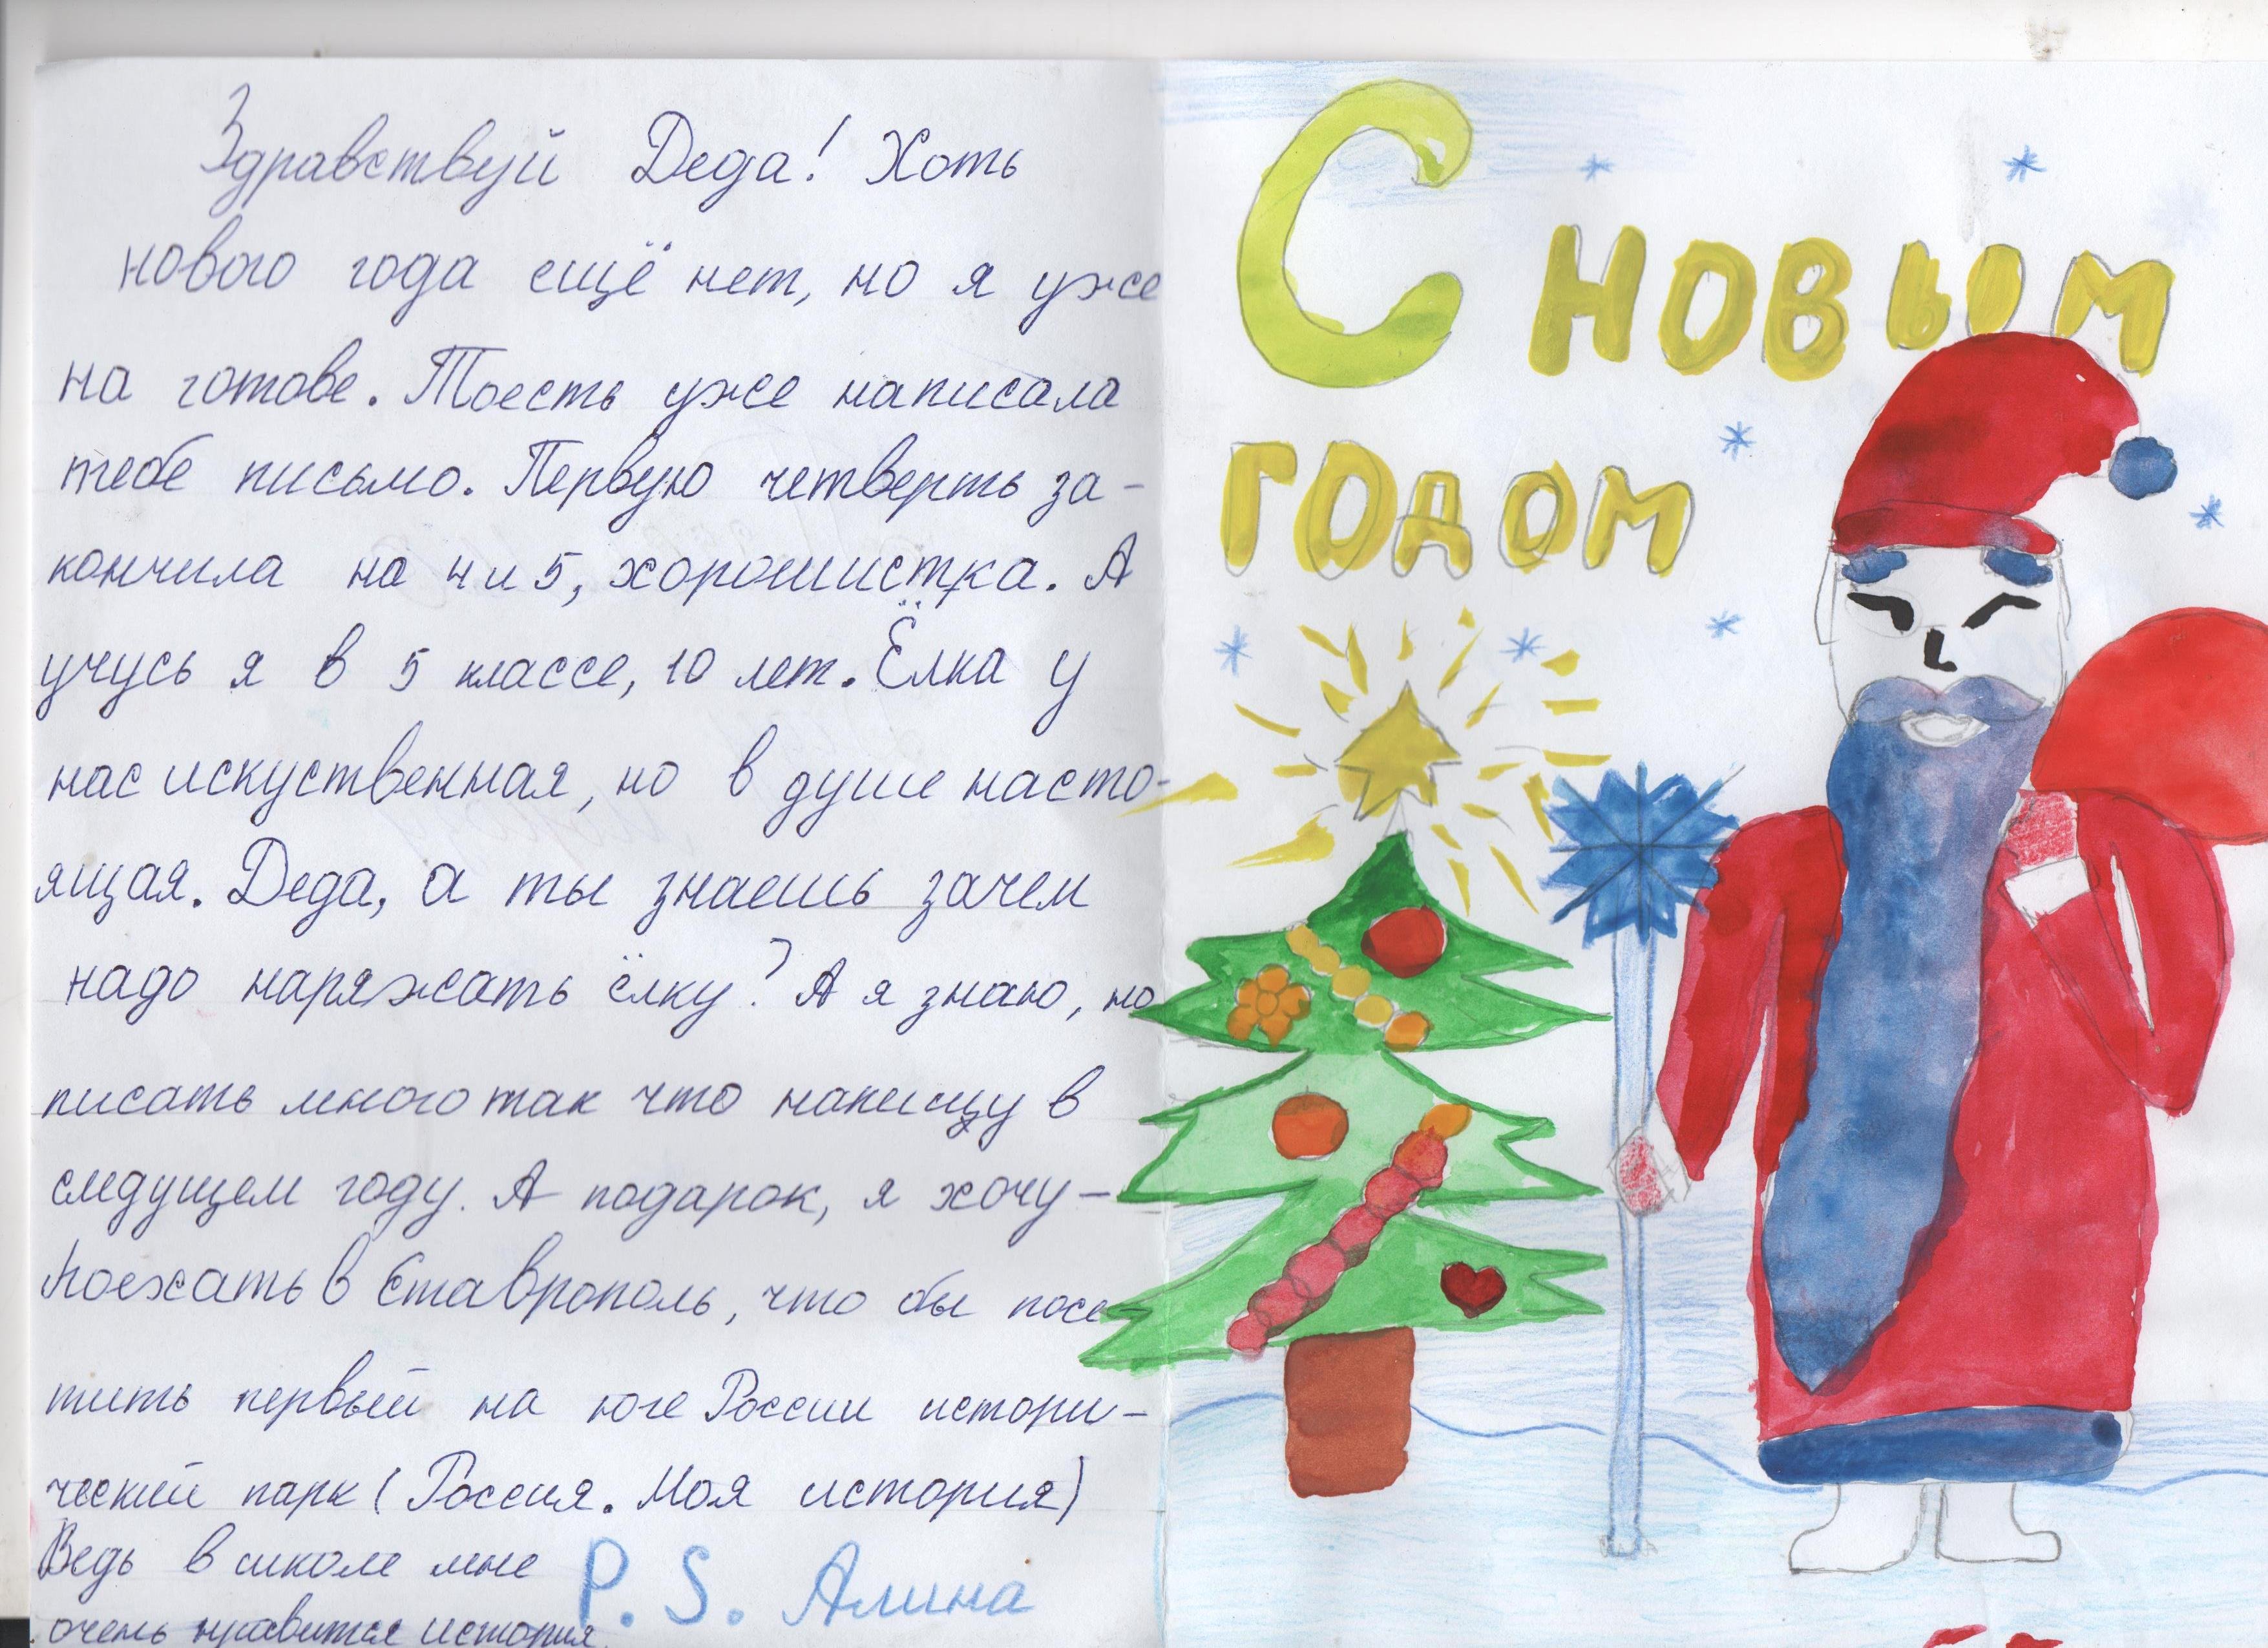 Здравствуй Деда! Хоть
нового года ещё нет, но я уже
на готове. Тоесть уже написала
тебе письмо. Первую четверть за-
кончила на 4 и 5, хорошистка. А
учусь я в 5 классе, 10 лет. Ёлка у
нас искуственная, но в душе насто-
ящая. Деда, а ты знаешь зачем
надо наряжать ёлку? А я знаю, но
писать много так что напишу в
следущем году. А подарок, я хочу -
поехать в Ставрополь, что бы посе-
тить первый на юге России истори-
ческий парк (Россия. Моя история)
Ведь в школе мне
очень нравится история.
P. S. Алина
С НОВЫМ
ГОДОМ